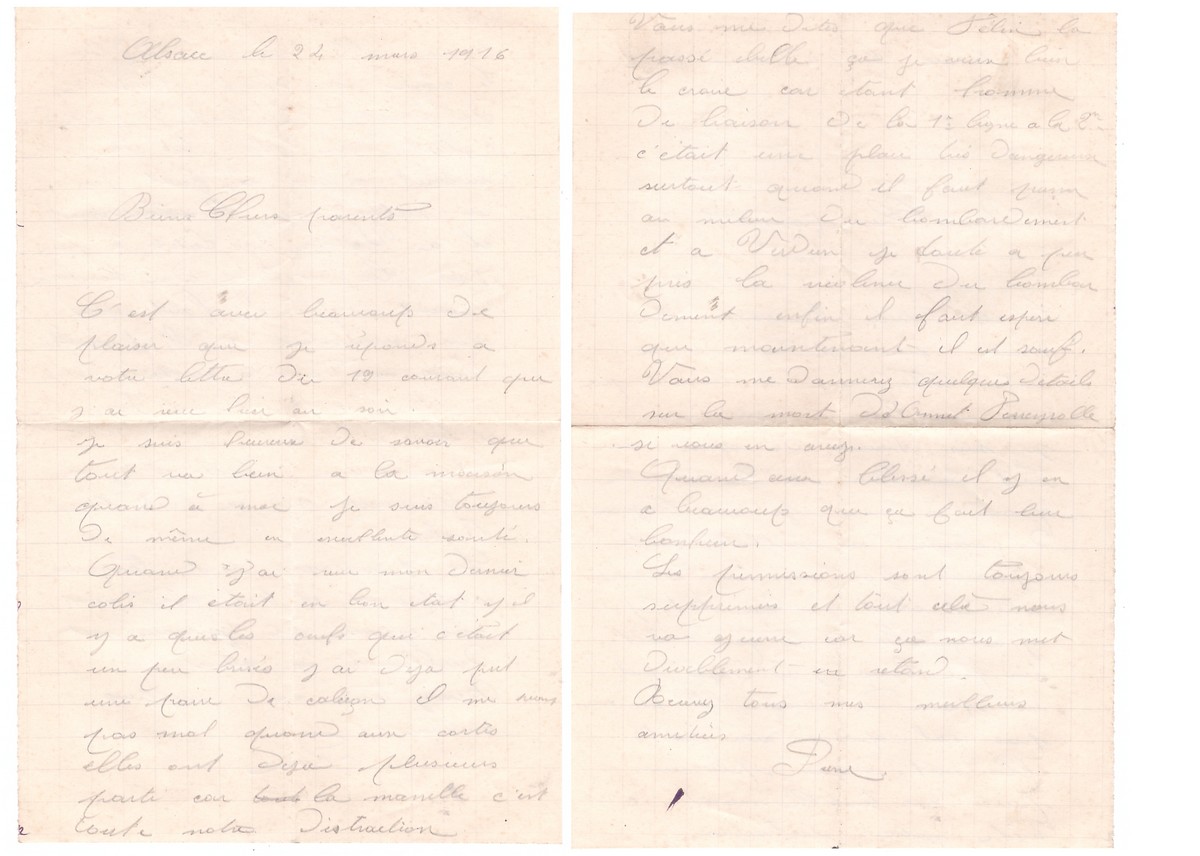 Alsace le 24 mars 1916
Biens Chers parents
C'est avec beaucoup de
plaisir que je réponds a
votre lettre du 19 courant que
j'ai reçu hier au soir.
je suis heureux de savoir que
tout va bien a la maison
quand à moi je suis toujours
de même en excellente santé.
Quand j'ai reçu mon dernier
colis il était en bon etat
y a que les oeufs qui c'était
un peu brisés j'ai deja put
une paire de caleçon il me
pas mal quand aux cartes
elles ont deja plusieurs
parti car la manille c'est
toute notre distraction
Vous me dites que Félix la
passé belle ça je veux bien
le croire car étant homme
de liaison de la 1re ligne a la 2me
c'était une place très dangereuse
surtout quand il faut passer
au milieu du bombardement
et a Verdun je doute a peu
près la violence du bombar
dement enfin il faut espérer
que maintenant il est sauf.
Vous me donnerez quelques détails
sur la mort d'Annet Perreyrolle
si vous en avez.
Quand aux blessé il y en
a beaucoup que ça fait leur
bonheur.
Les permissions sont toujours
supprimés et tout celà nous
va guerre car ça nous met
diablement en retard.
Recevez tous mes meilleurs
amitiés